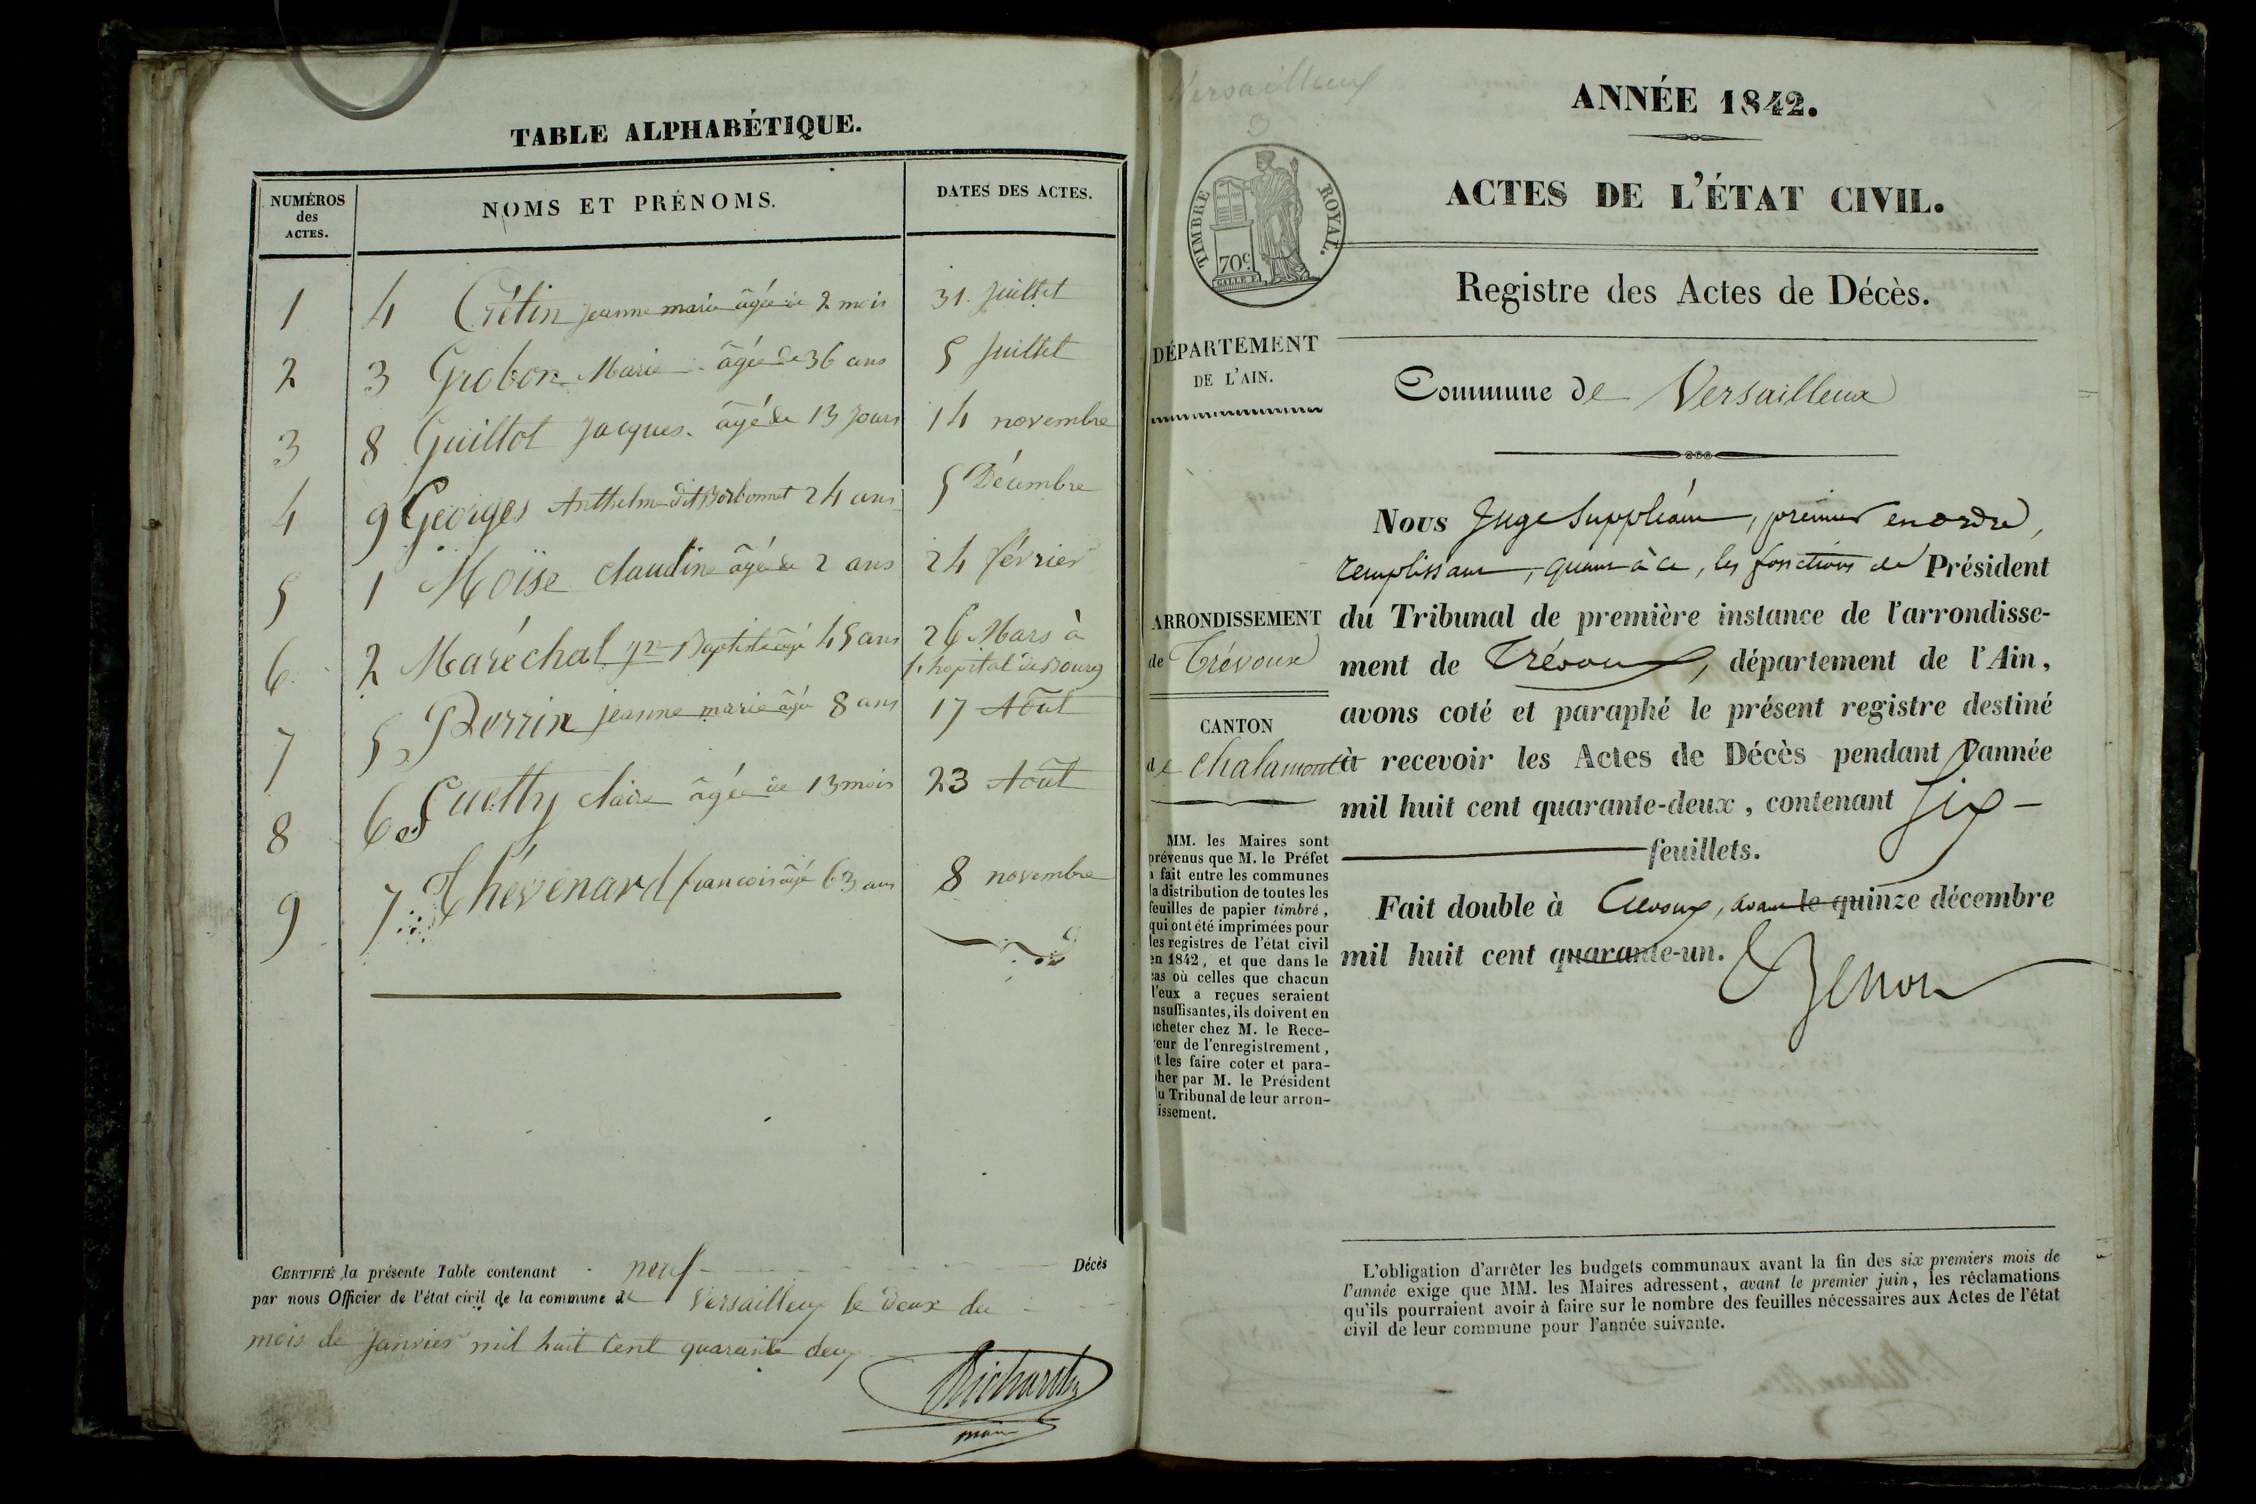 TABLE ALPHABÉTIQUE.
NUMÉROS des ACTES. NOMS ET PRÉNOMS. DATES DES ACTES.
1 4 Crétin jeanne marie âgée de 2 mois 31 juillet
2 3 Grobon Marie âgée de 36 ans 5 juillet
3 8 Guillot Jacques âgé de 13 jours 14 novembre
4 9 Georges Anthelme dit Borbonnet 24 ans 5 Décembre
5 1 Moïse claudine âgée de 2 ans 24 février
6 2 Maréchal jn Baptiste âgé 45 ans 26 Mars à
l. hopital de Bourg
7 5 Perrin jeanne marie âgée 8 ans 17 Août
8 6 claire âgée de 13 mois 23 Août
9 7 Thévenard francois âgé 63 ans 8 novembre
CERTIFIÉ la présente Table contenant neuf Décès
par nous Officier de l'état civil de la commune de Versailleux le deux du
mois de janvier mil huit cent quarante deux
Richard
maire
Versailleux
3
TIMBRE ROYAL.
70c.
ANNÉE 1842.
ACTES DE L'ÉTAT CIVIL.
Registre des Actes de Décès.
DÉPARTEMENT
DE L'AIN.
Commune de Versailleux
ARRONDISSEMENT
de Trévoux
CANTON
de Chalamont
MM. les Maires sont
prévenus que M. le Préfet
a fait entre les communes
la distribution de toutes les
feuilles de papier timbré,
qui ont été imprimées pour
les registres de l'état civil
en 1842, et que dans le
cas où celles que chacun
d'eux a reçues seraient
insuffisantes, ils doivent en
acheter chez M. le Rece-
veur de l'enregistrement,
et les faire coter et para-
pher par M. le Président
du Tribunal de leur arron-
issement.
Nous Juge Suppléant, premier en ordre,
remplissant, quant à ce, les fonctions de Président
du Tribunal de première instance de l'arrondisse-
ment de Trévoux, département de l'Ain,
avons coté et paraphé le présent registre destiné
à recevoir les Actes de Décès pendant l'année
mil huit cent quarante-deux, contenant six
feuillets.
Fait double à Trévoux, avant le quinze décembre
mil huit cent quarante-un.
L'obligation d'arrêter les budgets communaux avant la fin des six premiers mois de
l'année exige que MM. les Maires adressent, avant le premier juin, les réclamations
qu'ils pourraient avoir à faire sur le nombre des feuilles nécessaires aux Actes de l'état
civil de leur commune pour l'année suivante.